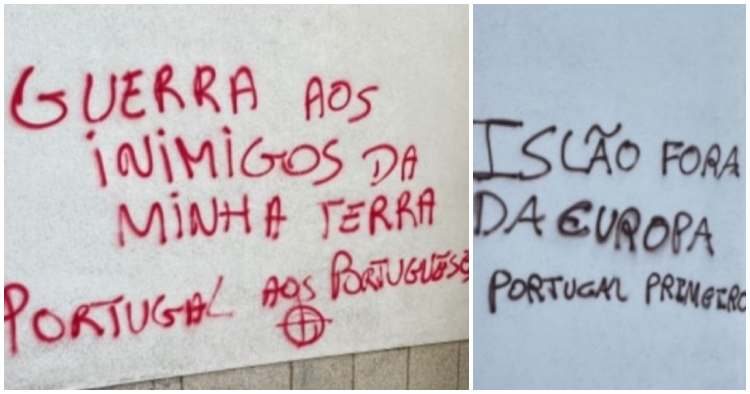 GUERRA AOS
INIMIGOS DA
MINHA TERRA
PORTUGAL AOS PORTUGUESES
ISLÃO FORA
DA EUROPA
PORTUGAL PRIMEIRO